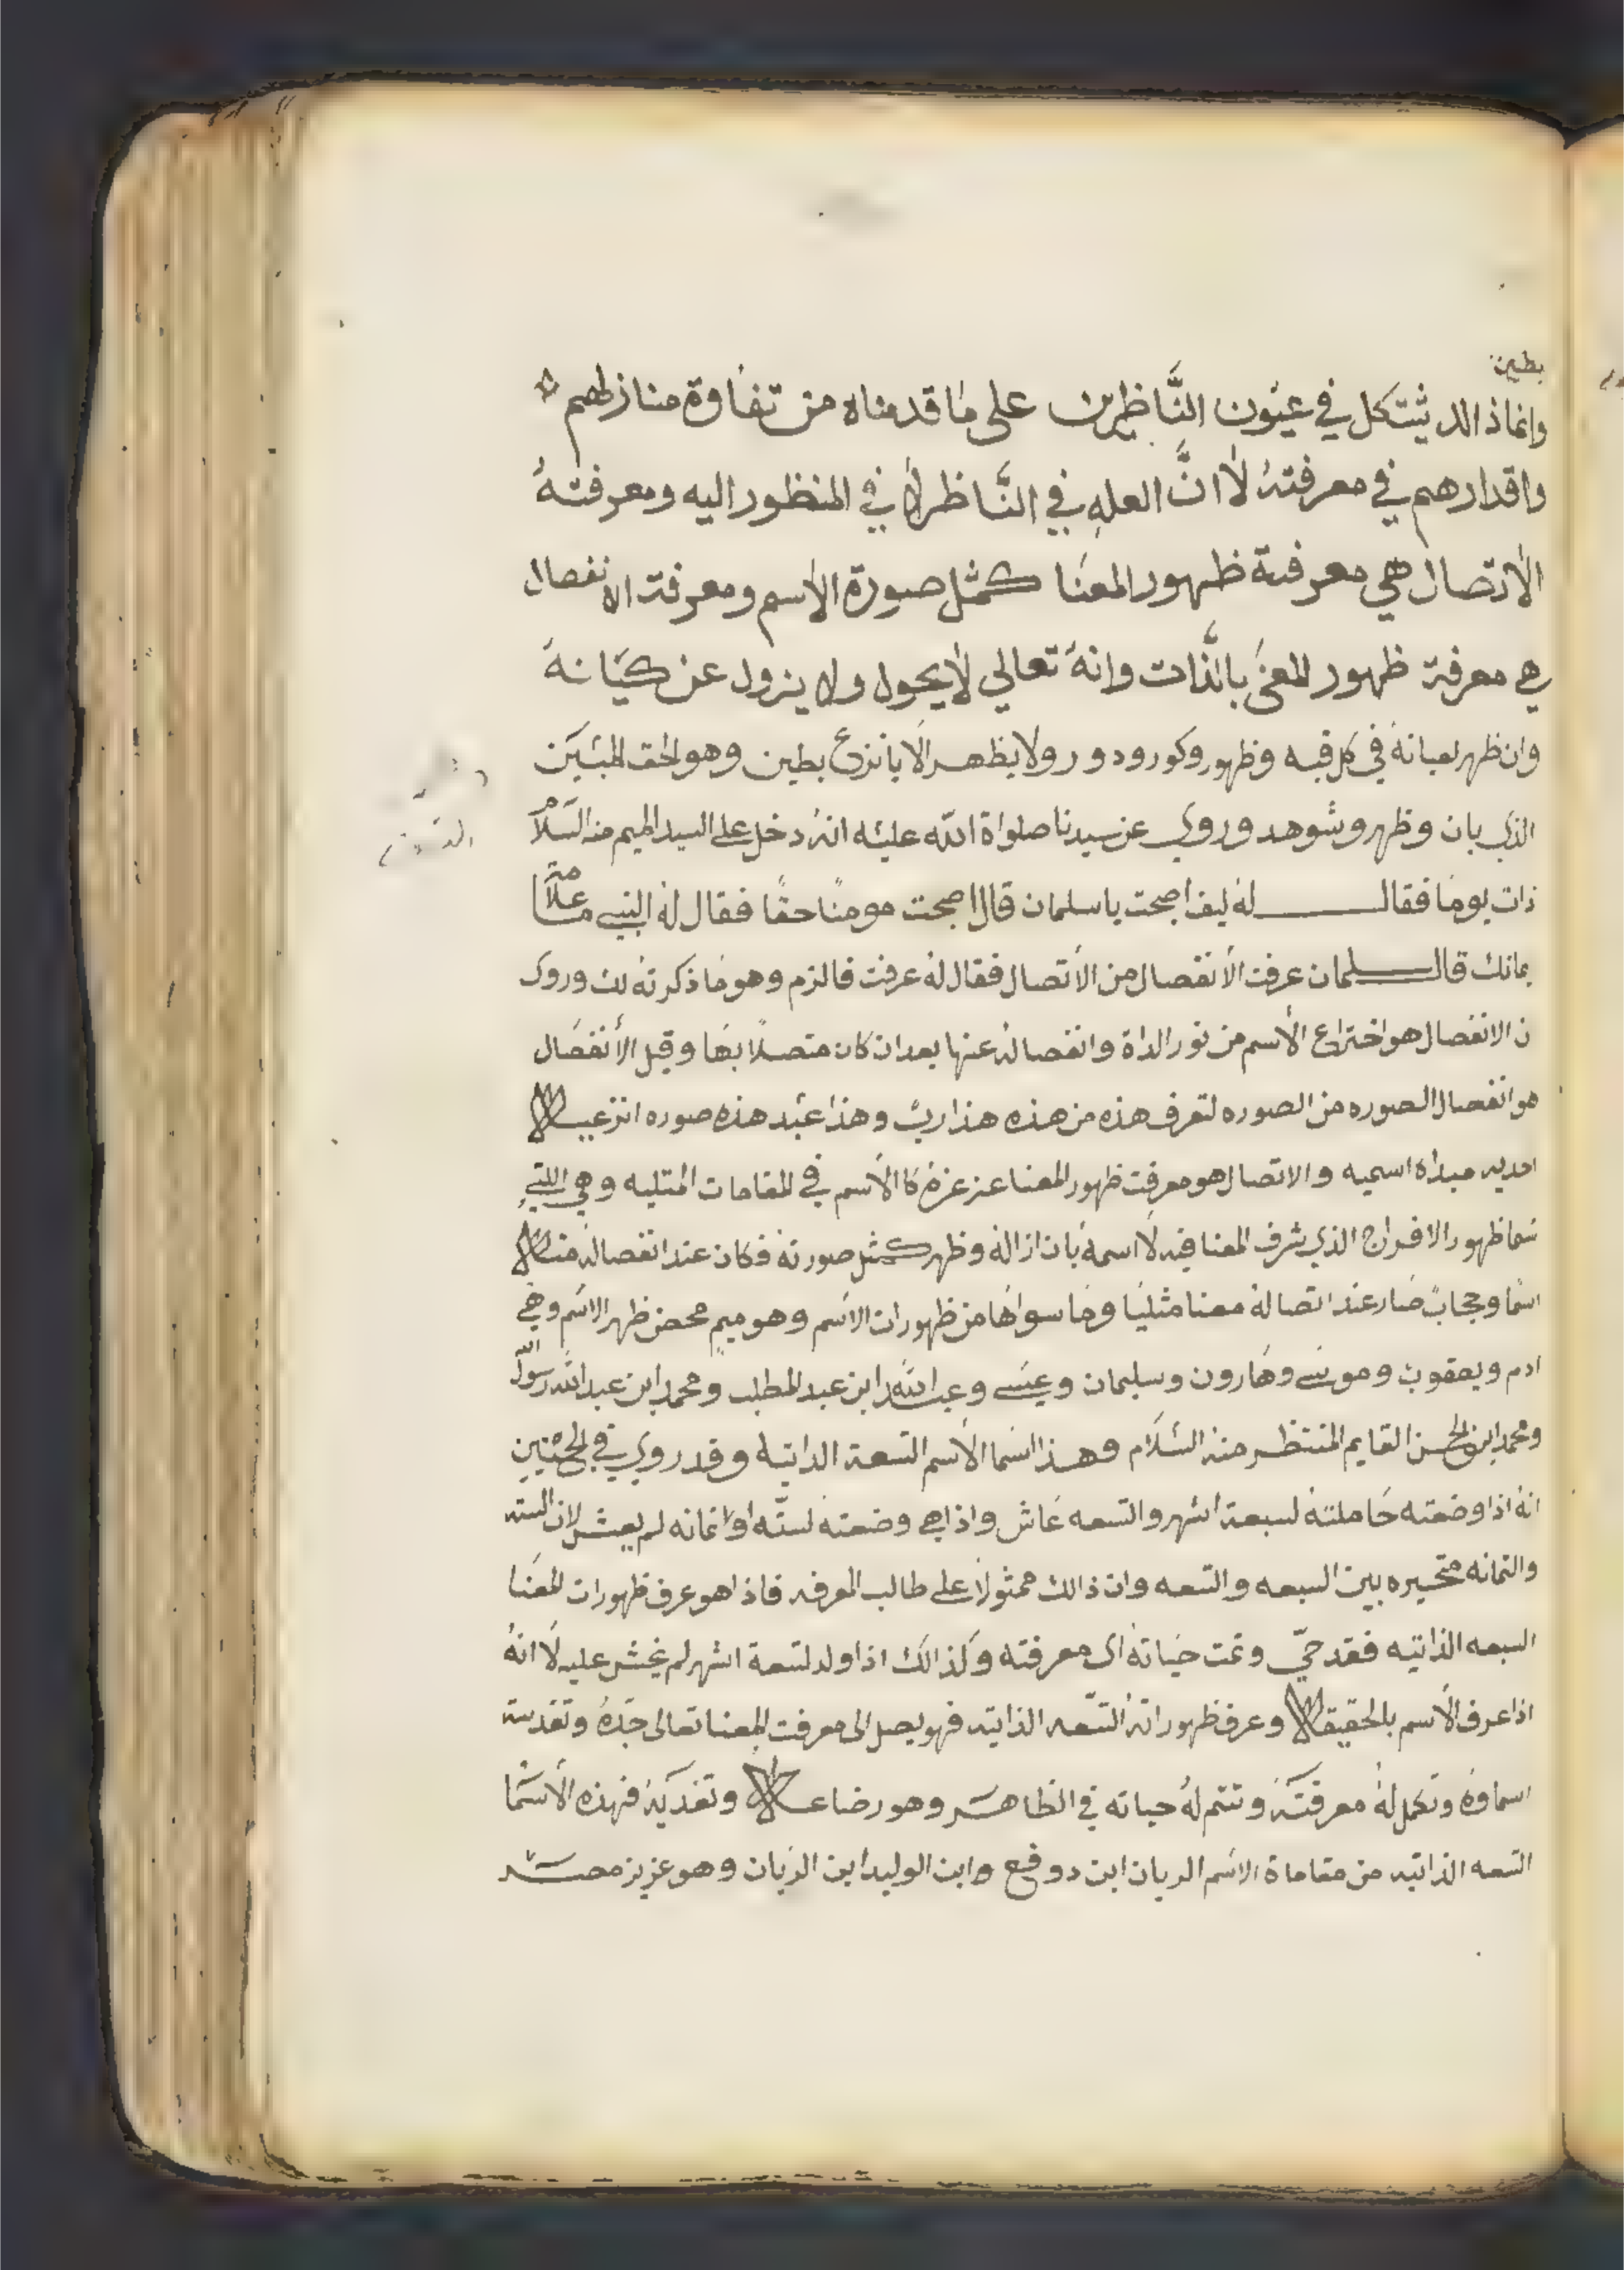 بطين
وانما ذالد يتشكل في عيُون النَّاظرين على ما قدمناه من تفاوة منازلهم
واقدارهم في معرفتهُ لاانَّ العله في النَّاظر لا في المنظور اليه ومعرفتهُ
الاتصال هي معرفة ظهور المعنا كمثل صورة الاسم ومعرفت الانفصال
هي معرفة ظهور المعنى بالذَّات وانهُ تعالي لا يحول ولا يزول عن كيَانهُ
وان ظهر لعيانهُ في كل قبه وظهور وكور ودور ولا يظهر الا بانزع بطين وهو الحق المبيَن
الذي بان وظهر وشوهد وروي عن سيدنا صلواة الله عليه انهُ دخل على السيد الميم منه السَلامُ
ذات يومًا فقال لهُ ليف اصبحت ياسلمان قال اصبحت مومنًا حقًا فقال لهُ النبي ما علامة
يمانك قال سلمان عرفت الأنفصال من الأتصال فقال لهُ عرفت فالزم وهو ما ذكرتهُ لك وروى
ن الانفصال هو اختراع الأسم من نور الداة وانفصالهُ عنها بعد ان كان متصلًا بها وقيل الأنفصال
هو انفصال الصوره من الصوره لتعرف هذه من هذه هذا ربٌ وهذا عبُد هذه صوره انزعيـ
احديه مبداه اسميه والاتصال هو معرفت ظهور المعنا عز عزهُ كا الأسم في المقامات المتليه وهي اللتي
سما ظهور الافراج الذي يشرف المعنا فيه لااسمهُ بان ازالهُ وظهر كمثل صورتهُ فكان عند انفصالهُ منـ
اسمًا وحجابً صار عند اتصالهُ معنا مثليًا وما سواها من ظهورات الاسم وهو ميمٍ محض ظهر الاسم وهي
ادم ويعقوب وموسَى وهَارون وسليمان وعيسَى وعبد اللَّه ابن عبد المطلب ومحمد ابن عبد الله رسول الله
ومحمد ابن الحسن القايم المنتظر منهُ السَلام وهذا اسما الأسم التسعة الداتيه وقد روي في الجنين
انهُ اذا وضعته حَاملتهُ لسبعة اشهر والتسعه عاش واذا هي وضعتهُ لستّه او لا ثمانه لم يعش لان السته
والثمانه متحيره بين السبعه والتسعه وان ذالك ممثولًا على طالب المعرفه فاذا هو عرف ظهورات المعنا
السبعه الذاتيه فقد حيّ وتمت حيَاتهُ اى معرفته وكذالك اذا ولد لتسعة اشهر لم يخش عليه لاانهُ
اذا عرف الأسم بالحقيقـ وعرف ظهوراتهُ التسّعه الذاتيه فهو يصل الى معرفت المعنا تعالى جدّهُ وتقدست
اسماوهُ وتكمل لهُ معرفتَهُ وتتم لهُ حياته في الظاهر وهو رضاعـ وتغديَتهُ فهذه الأسَما
التسعه الذاتيه من مقاماة الاسم الريان ابن دوفع وابن الوليد ابن الريان وهو عزيز مصر